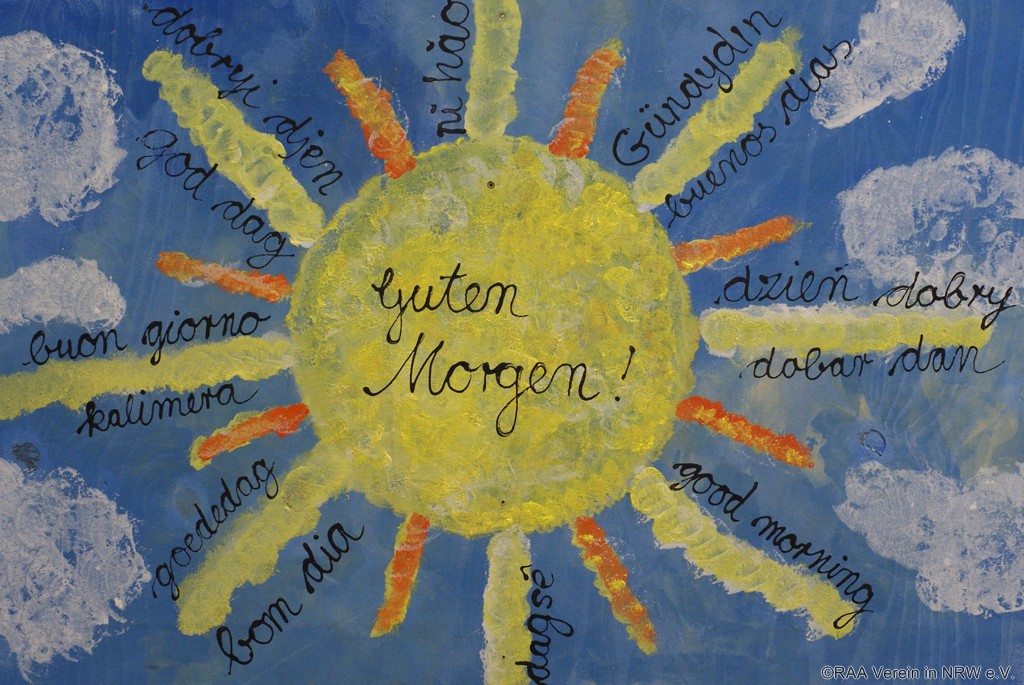 dobryj djen
god dag
ni hăo
Gündydın
buenos dias
Guten
Morgen!
dzień dobry
dobar dan
buon giorno
kalimera
goededag
bom dia
dagsê
good morning
©RAA Verein in NRW e.V.